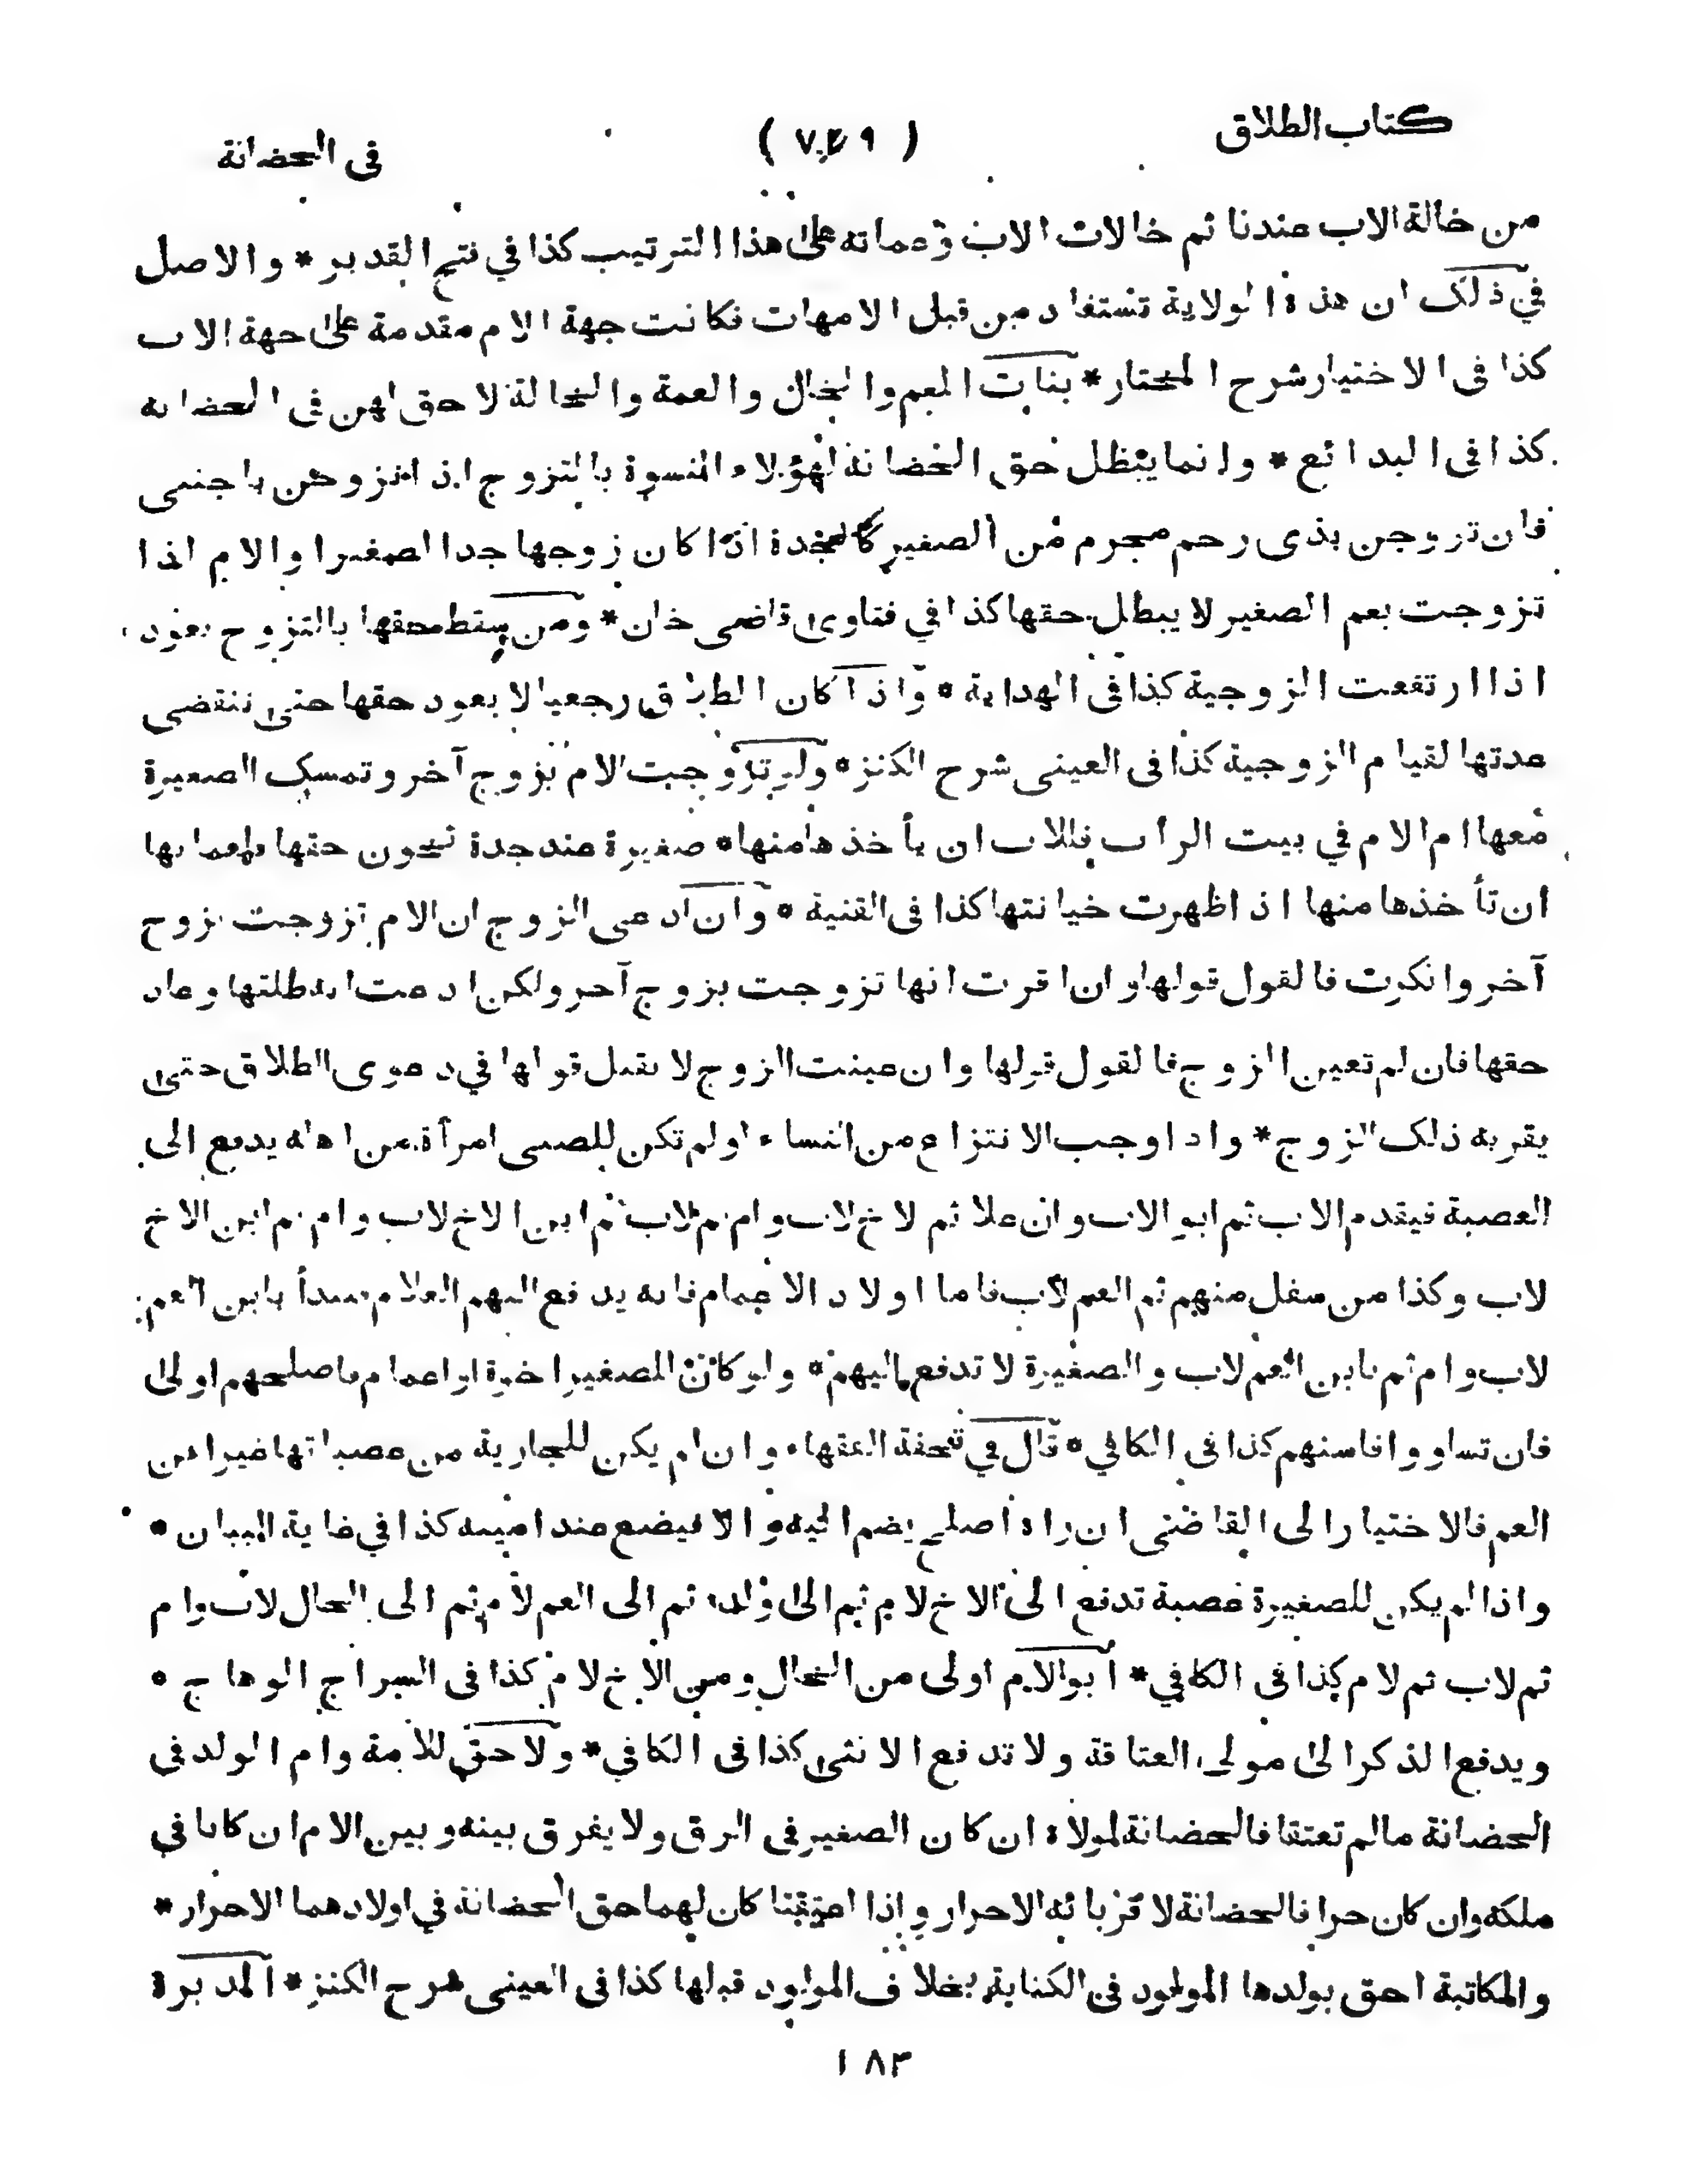 كتاب الطلاق
( ٧٤٩ )
فى الحضانة
من خالة الاب عندنا ثم خالات الاب وعماته على هذا الترتيب كذا في فتح القدير * والاصل
في ذلك ان هذه الولاية تستفاد من قبل الامهات فكانت جهة الام مقدمة على جهة الاب
كذا فى الاختيار شرح المختار * بنات العم والخال والعمة والخالة لا حق لهن فى الحضانة
كذا فى البدائع * وانما يبطل حق الحضانة لهؤلاء النسوة بالتزوج اذا تزوجن باجنبى
فان تزوجن بذى رحم محرم من الصغير كالجدة اذا كان زوجها جدا لصغير او الام اذا
تزوجت بعم الصغير لا يبطل حقها كذا في فتاوى قاضى خان * ومن سقط حقها بالتزوج يعود
اذا ارتفعت الزوجية كذا فى الهداية * واذا كان الطلاق رجعيا لا يعود حقها حتى تنقضى
عدتها لقيام الزوجية كذا فى العينى شرح الكنز * ولو تزوجت الام بزوج آخر وتمسك الصغيرة
معها ام الام في بيت الراب فللاب ان يأخذها منها * صغيرة عند جدة تخون حقها فلعماتها
ان تأخذها منها اذا ظهرت خيانتها كذا فى القنية * وان ادعى الزوج ان الام تزوجت بزوج
آخر وانكرت فالقول قولها وان اقرت انها تزوجت بزوج آخر ولكن ادعت انه طلقها وعاد
حقها فان لم تعين الزوج فالقول قولها وان عينت الزوج لا يقبل قولها في دعوى الطلاق حتى
يقر به ذلك الزوج * واذا وجب الانتزاع من النساء او لم تكن للصبى امرأة من اهله يدفع الى
العصبة فيقدم الاب ثم ابو الاب وان علا ثم لاخ لاب وام ثم لاب ثم ابن الاخ لاب وام ثم ابن الاخ
لاب وكذا من سفل منهم ثم العم لاب فاما اولاد الاعمام فانه يدفع اليهم الغلام يبدأ بابن العم
لاب وام ثم بابن العم لاب والصغيرة لا تدفع اليهم * ولو كان للصغير اخوة او اعمام فاصلحهم اولى
فان تساووا فاسنهم كذا فى الكافي * قال في تحفة الفقهاء وان لم يكن للجارية من عصباتها غير ابن
العم فالاختيار الى القاضى ان راه اصلح يضم اليه والا فيضع عند امينه كذا في غاية البيان *
واذا لم يكن للصغيرة عصبة تدفع الى الاخ لام ثم الى ولده ثم الى العم لام ثم الى الخال لاب وام
ثم لاب ثم لام كذا فى الكافي * ابو الام اولى من الخال ومن الاخ لام كذا فى السراج الوهاج *
ويدفع الذكر الى مولى العتاقة ولا تدفع الانثى كذا فى الكافي * ولا حق للامة وام الولد فى
الحضانة مالم تعتقا فالحضانة لمولاه ان كان الصغير فى الرق ولا يفرق بينه وبين الام ان كانا فى
ملكه وان كان حرا فالحضانة لاقربائه الاحرار واذا اعتقتا كان لهما حق الحضانة في اولادهما الاحرار *
والمكاتبة احق بولدها المولود فى الكتابة بخلاف المولود قبلها كذا فى العينى شرح الكنز * المدبرة
١٨٣